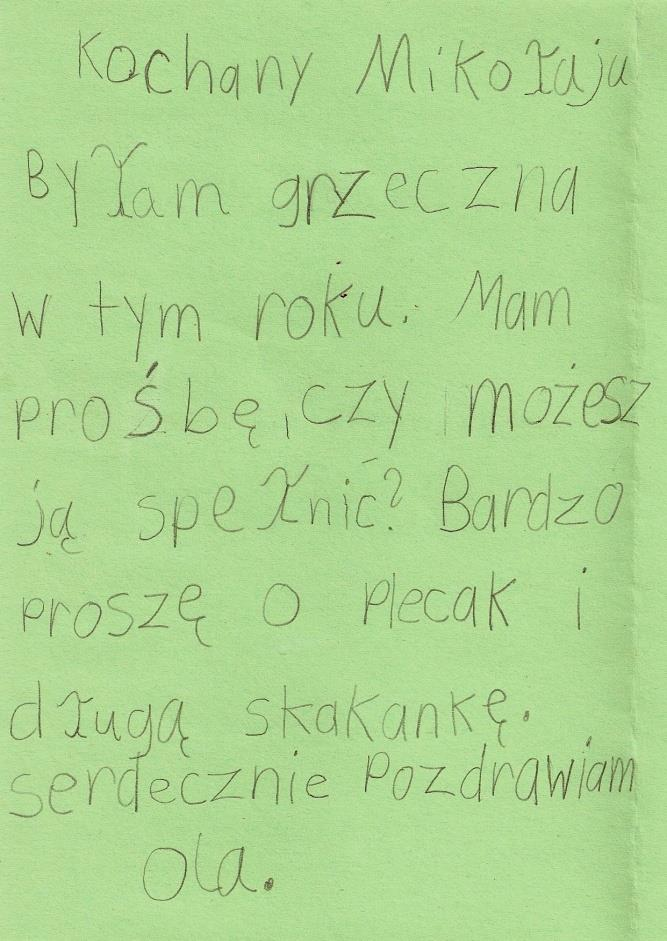 Kochany Mikołaju
Byłam grzeczna
w tym roku. Mam
prośbę, czy możesz
ją spełnić? Bardzo
proszę o plecak i
długą skakankę.
serdecznie Pozdrawiam
Ola.